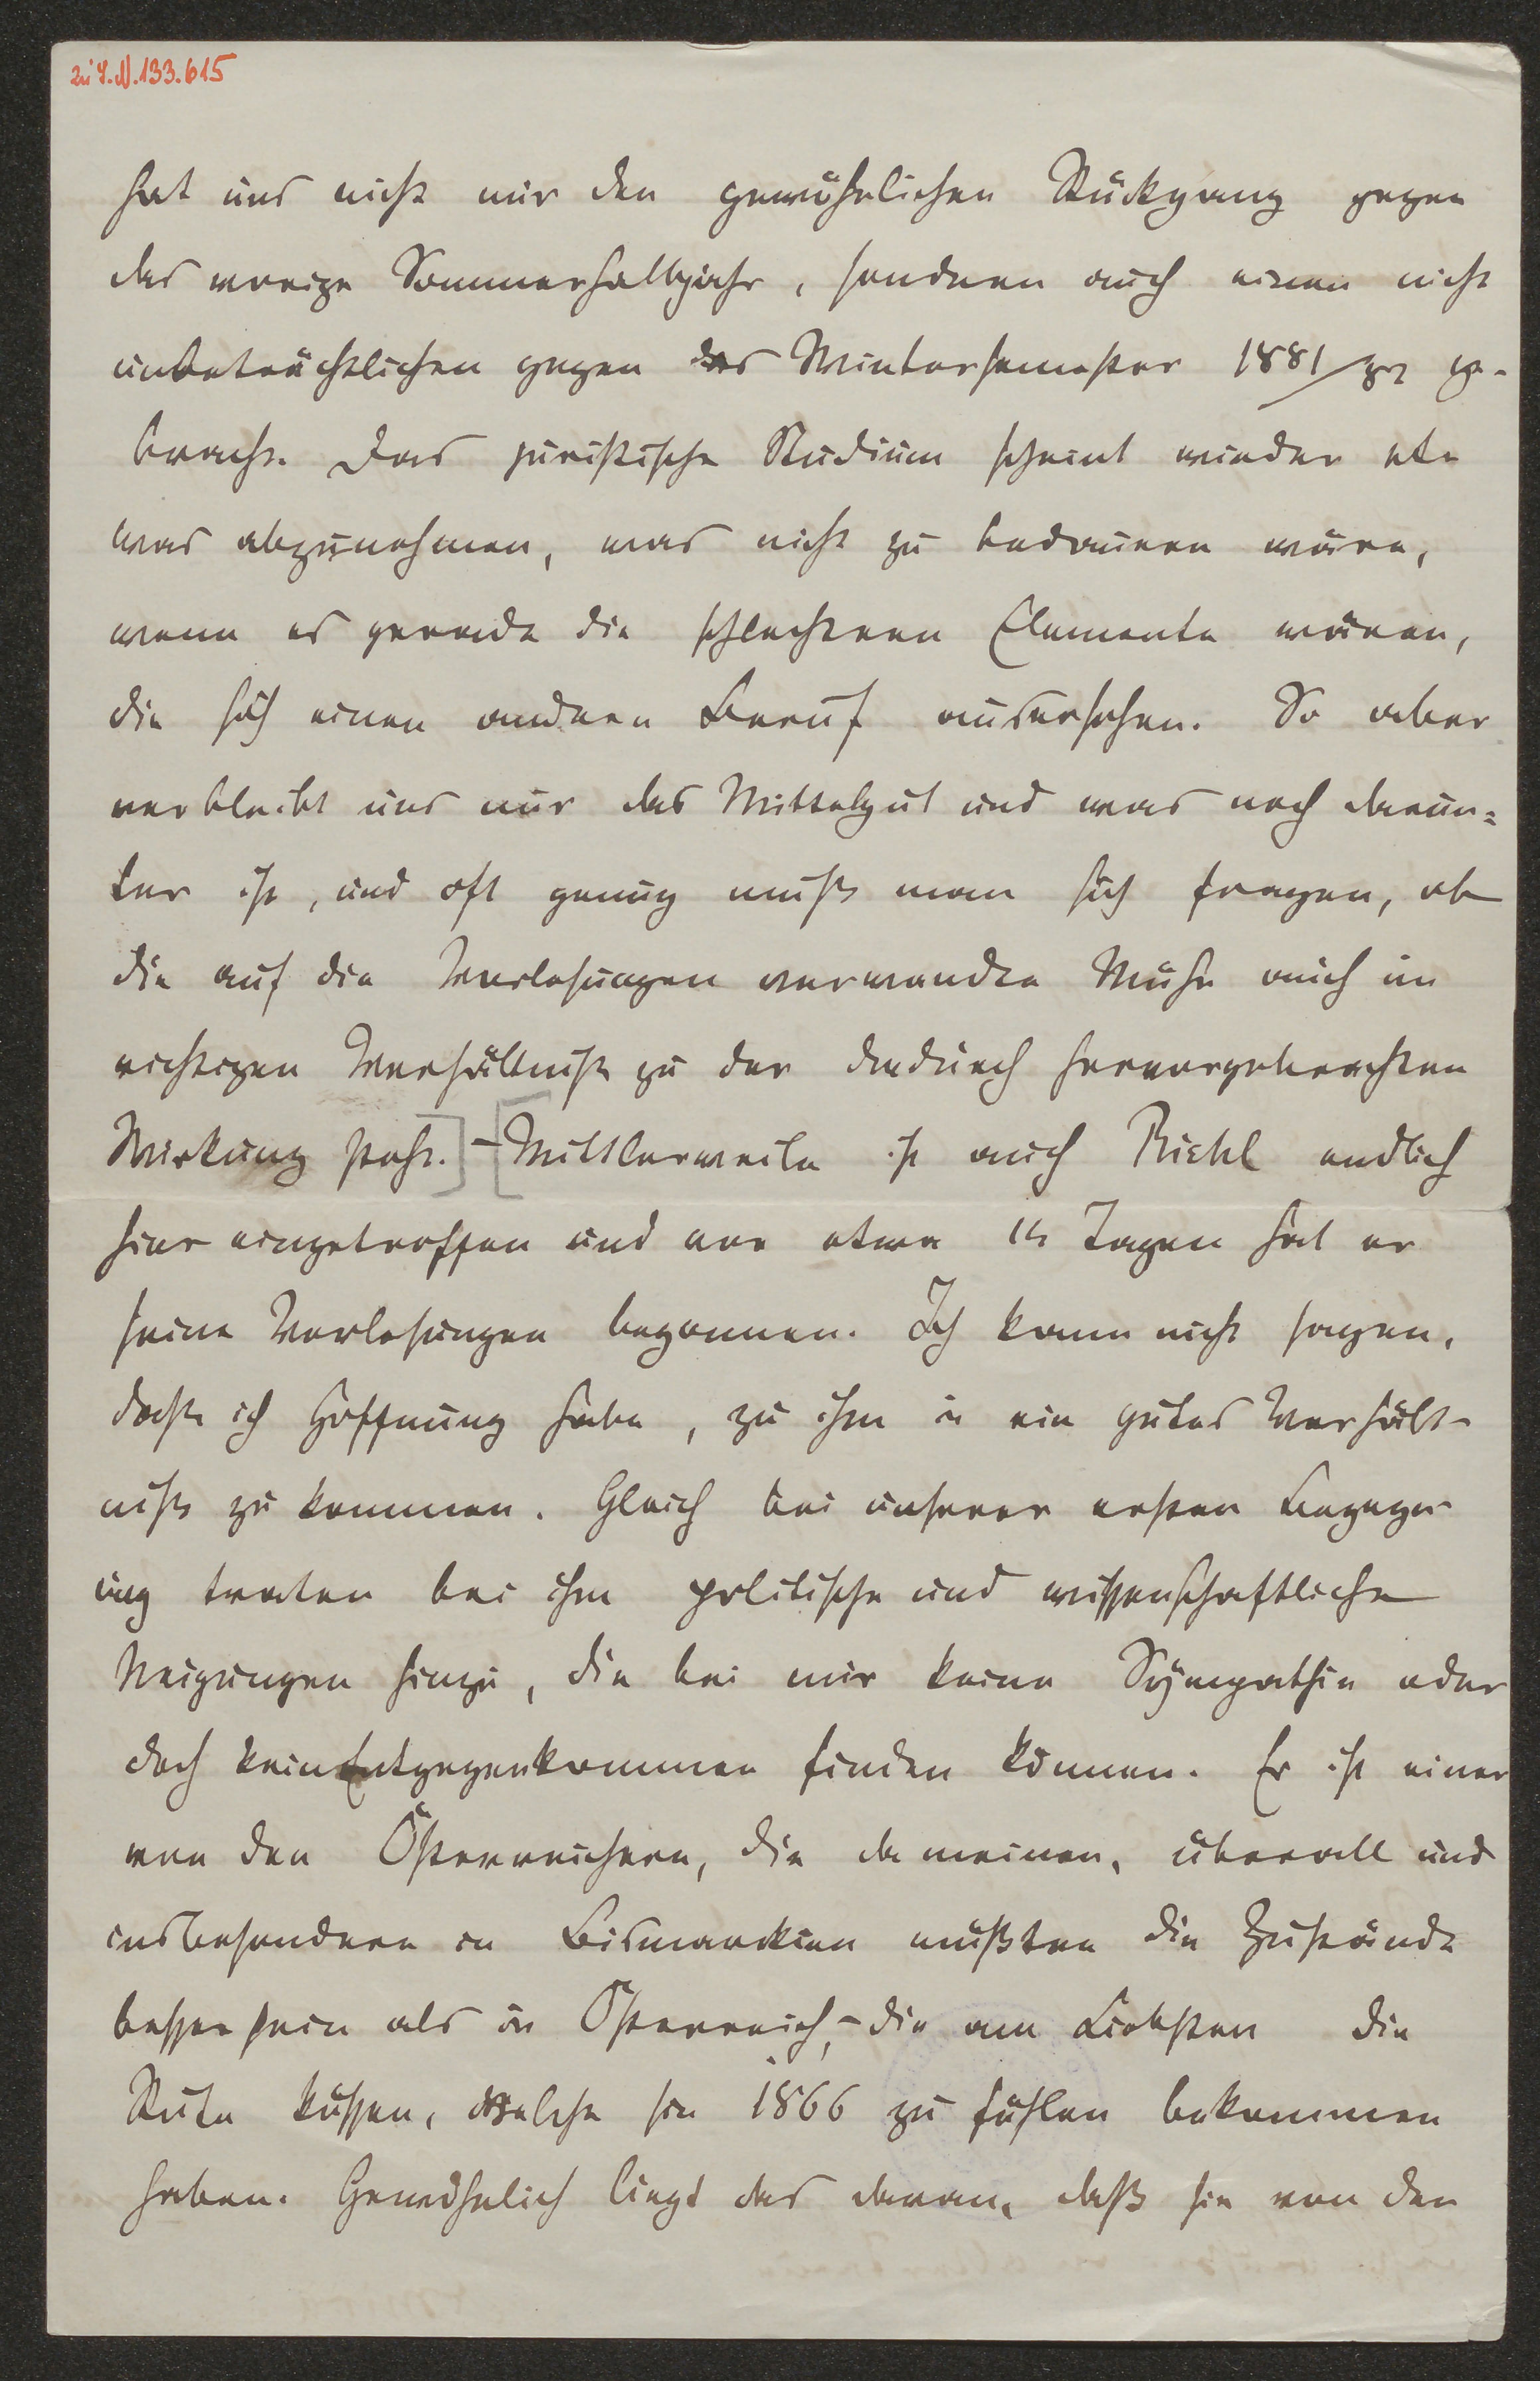 zu I.N.133.615
hat uns nicht nur den gewöhnlichen Rückgang gegen
das vorige Sommerhalbjahr, sondern auch einen nicht
unbeträchtlichen gegen das Wintersemester 1881/82 ge-
bracht. Das juristische Studium scheint wieder et-
was abzunehmen, was nicht zu bedauern wäre,
wenn es gerade die schlechteren Elemente wären,
die sich einen andren Beruf ausersehen. So aber
verbleibt uns nur das Mittelgut und was noch darun=
ter ist, und oft genug muß man sich fragen, ob
die auf die Vorlesungen verwandte Mühe auch im
richtigen Verhältniß zu der dadurch hervorgebrachten
Wirkung steht.] – [Mittlerweile ist auch Riehl endlich
hier eingetroffen und vor etwa 14 Tagen hat er
seine Vorlesungen begonnen. Ich kann nicht sagen,
daß ich Hoffnung habe, zu ihm in ein gutes Verhält-
niß zu kommen. Gleich bei unserer ersten Begegn-
ung traten bei ihm politische und wissenschaftliche
Neigungen hinzu, die bei mir keine Sympathie oder
doch kein Entgegenkommen finden können. Er ist einer
von den Österreichern, die da meinen, überall und
insbesondere in Bismarckien müßten die Zustände
besser sein als in Österreich, – die am Liebsten die
Rute küssen, welche sie 1866 zu fühlen bekommen
haben. Gewöhnlich liegt das daran, daß sie von den